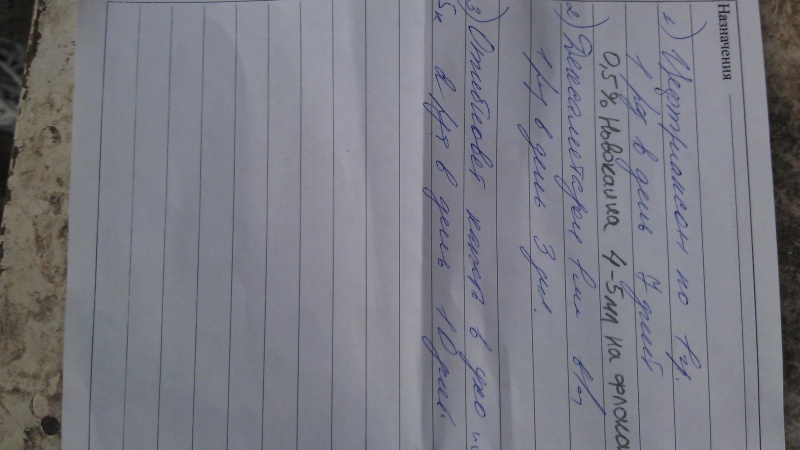 Назначения
1) Цефтриаксон по 1гр.
1 р/д в день 7 дней
0,5% Новокаина 4-5мл на флако
2) Дексаметазон 1мл в/м
1 р/д в день 3 дня.
3) Отибиовет капать в ухо
5к 2 р/д в день 10 дней.